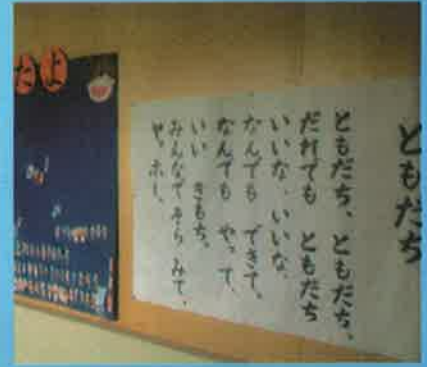 ともだち
ともだち、ともだち、
だれでも ともだち
いいな、いいな、
なんでも できて、
なんでも やって、
いい きもち。
みんなで そら みて、
ヤッホー。
たよ